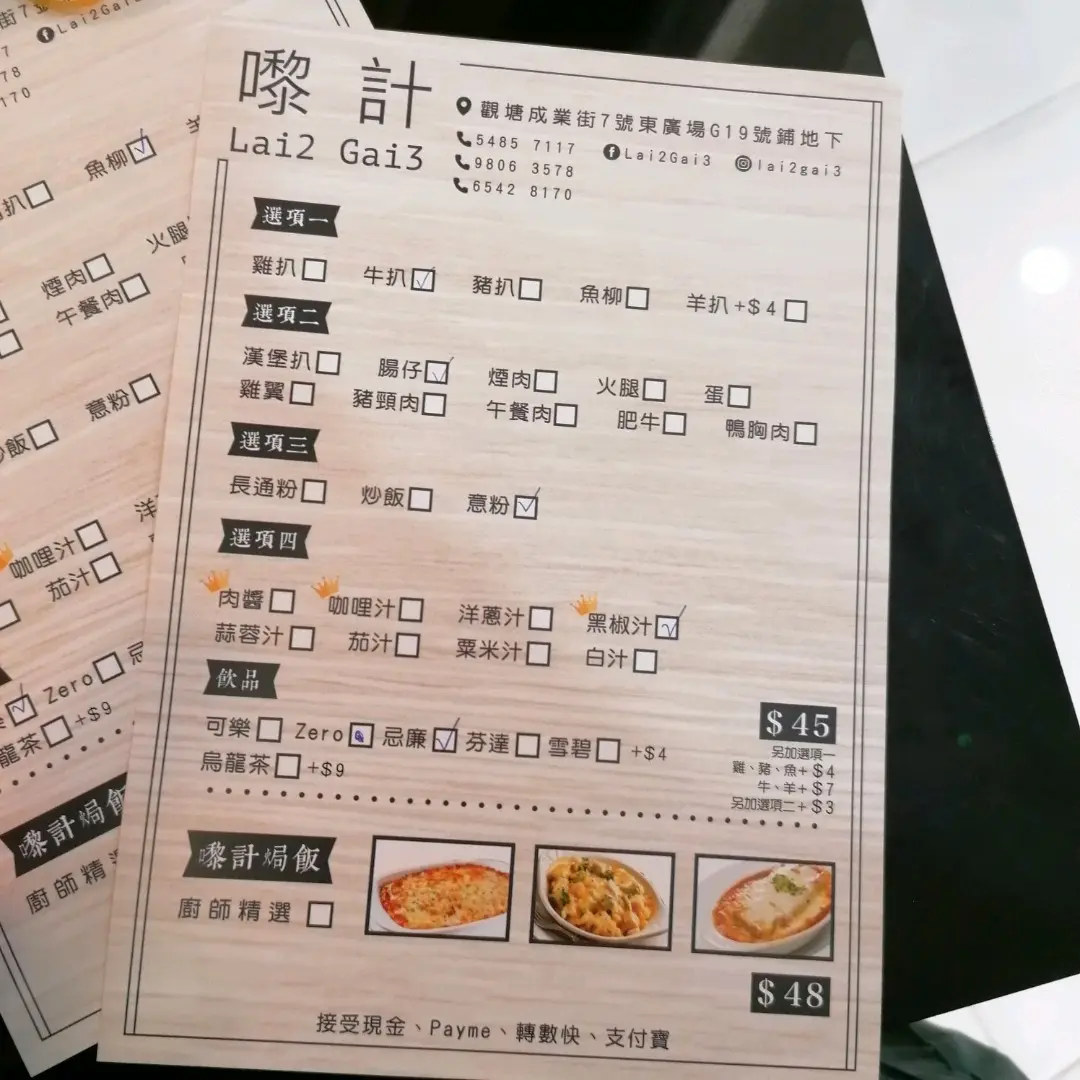 嚟計
Lai2 Gai3
觀塘成業街7號東廣場G19號鋪地下
5485 7117
9806 3578
6542 8170
Lai2Gai3
lai2gai3
選項一
雞扒 牛扒 豬扒 魚柳 羊扒+$4
選項二
漢堡扒 腸仔 煙肉 火腿 蛋
雞翼 豬頸肉 午餐肉 肥牛 鴨胸肉
選項三
長通粉 炒飯 意粉
選項四
肉醬 咖哩汁 洋蔥汁 黑椒汁
蒜蓉汁 茄汁 粟米汁 白汁
飲品
可樂 Zero 忌廉 芬達 雪碧 +$4
烏龍茶 +$9
$45
另加選項一
雞、豬、魚+$4
牛、羊+$7
另加選項二+$3
嚟計焗飯
廚師精選
$48
接受現金、Payme、轉數快、支付寶
魚柳
扒
火腿
煙肉
午餐肉
意粉
飯
洋
咖哩汁
茄汁
Zero
忌
+$9
龍茶
嚟計焗飯
廚師精選